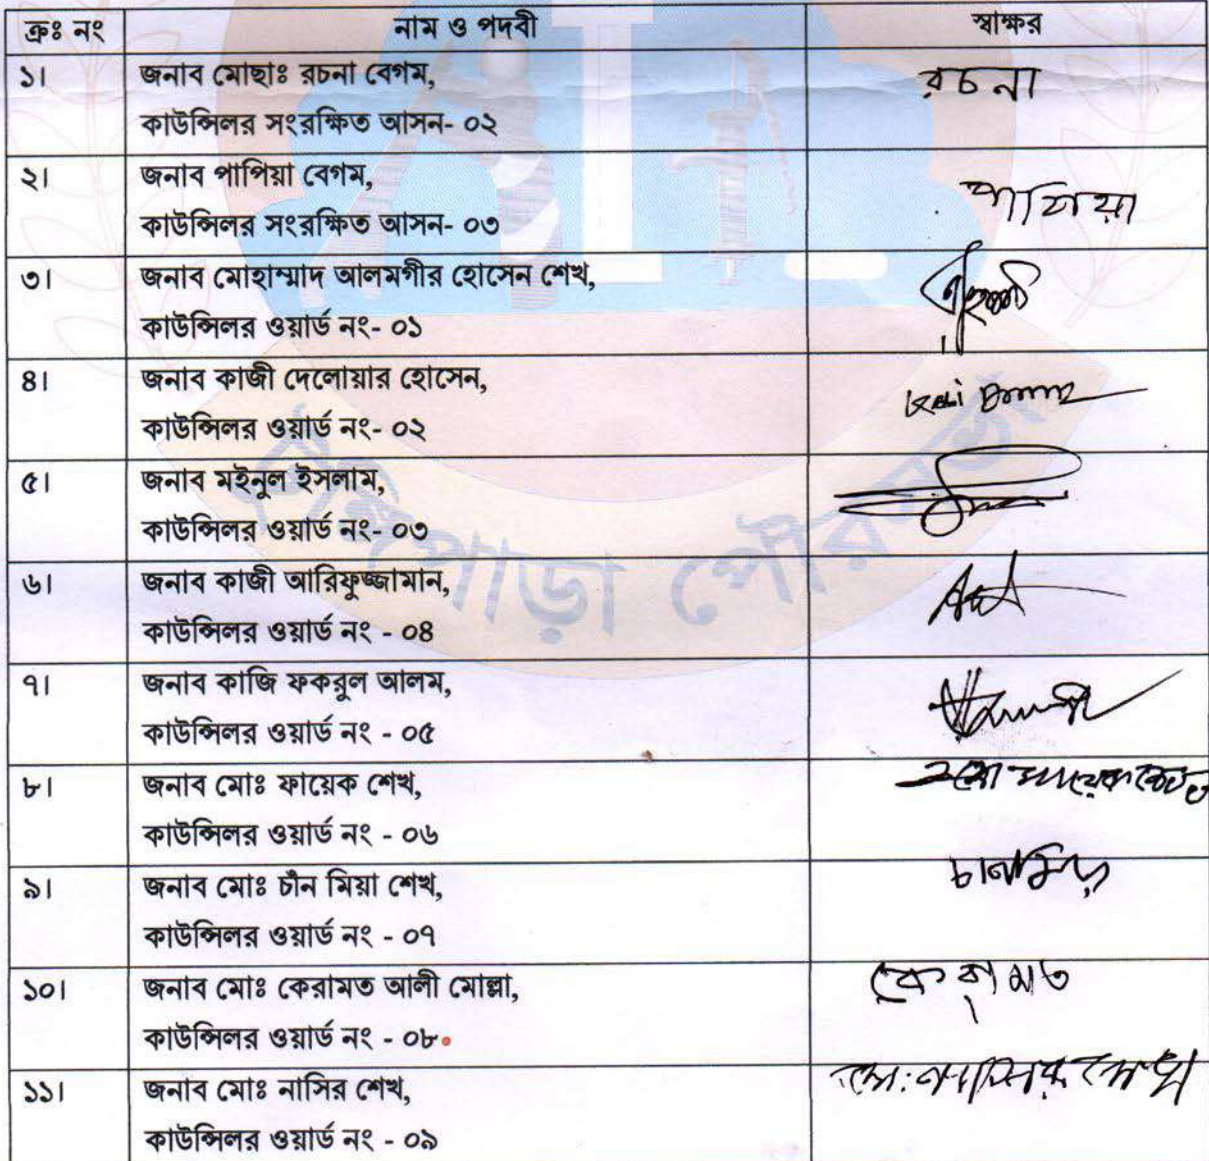 ক্রঃ নং নাম ও পদবী স্বাক্ষর
১। জনাব মোছাঃ রচনা বেগম, রচনা
কাউন্সিলর সংরক্ষিত আসন- ০২
২। জনাব পাপিয়া বেগম, পাপিয়া
কাউন্সিলর সংরক্ষিত আসন- ০৩
৩। জনাব মোহাম্মাদ আলমগীর হোসেন শেখ,
কাউন্সিলর ওয়ার্ড নং- ০১
৪। জনাব কাজী দেলোয়ার হোসেন,
কাউন্সিলর ওয়ার্ড নং- ০২
৫। জনাব মইনুল ইসলাম,
কাউন্সিলর ওয়ার্ড নং- ০৩
৬। জনাব কাজী আরিফুজ্জামান,
কাউন্সিলর ওয়ার্ড নং - ০৪
৭। জনাব কাজি ফকরুল আলম,
কাউন্সিলর ওয়ার্ড নং - ০৫
৮। জনাব মোঃ ফায়েক শেখ,
কাউন্সিলর ওয়ার্ড নং - ০৬
৯। জনাব মোঃ চাঁন মিয়া শেখ,
কাউন্সিলর ওয়ার্ড নং - ০৭
১০। জনাব মোঃ কেরামত আলী মোল্লা, কেরামত
কাউন্সিলর ওয়ার্ড নং - ০৮
১১। জনাব মোঃ নাসির শেখ,
কাউন্সিলর ওয়ার্ড নং - ০৯
টুঙ্গিপাড়া পৌরসভা